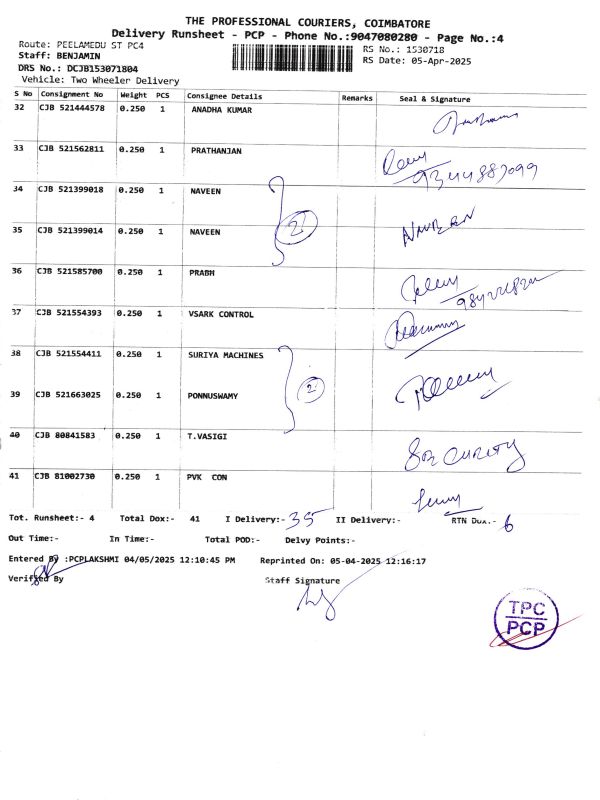 THE PROFESSIONAL COURIERS, COIMBATORE
Delivery Runsheet - PCP - Phone No.:9047080280 - Page No.:4
Route: PEELAMEDU ST PC4 RS No.: 1530718
Staff: BENJAMIN RS Date: 05-Apr-2025
DRS No.: DCJB153071804
Vehicle: Two Wheeler Delivery
S No Consignment No Weight PCS Consignee Details Remarks Seal & Signature
32 CJB 521444578 0.250 1 ANADHA KUMAR
33 CJB 521562811 0.250 1 PRATHANJAN
34 CJB 521399018 0.250 1 NAVEEN
2
35 CJB 521399014 0.250 1 NAVEEN NAVEEN
36 CJB 521585700 0.250 1 PRABH
37 CJB 521554393 0.250 1 VSARK CONTROL
38 CJB 521554411 0.250 1 SURIYA MACHINES
2
39 CJB 521663025 0.250 1 PONNUSWAMY
40 CJB 80841583 0.250 1 T.VASIGI
41 CJB 81002730 0.250 1 PVK CON
Tot. Runsheet:- 4 Total Dox:- 41 I Delivery:- 35 II Delivery:- RTN Dox:- 6
Out Time:- In Time:- Total POD:- Delvy Points:-
Entered By :PCPLAKSHMI 04/05/2025 12:10:45 PM Reprinted On: 05-04-2025 12:16:17
Verified By Staff Signature
TPC
PCP